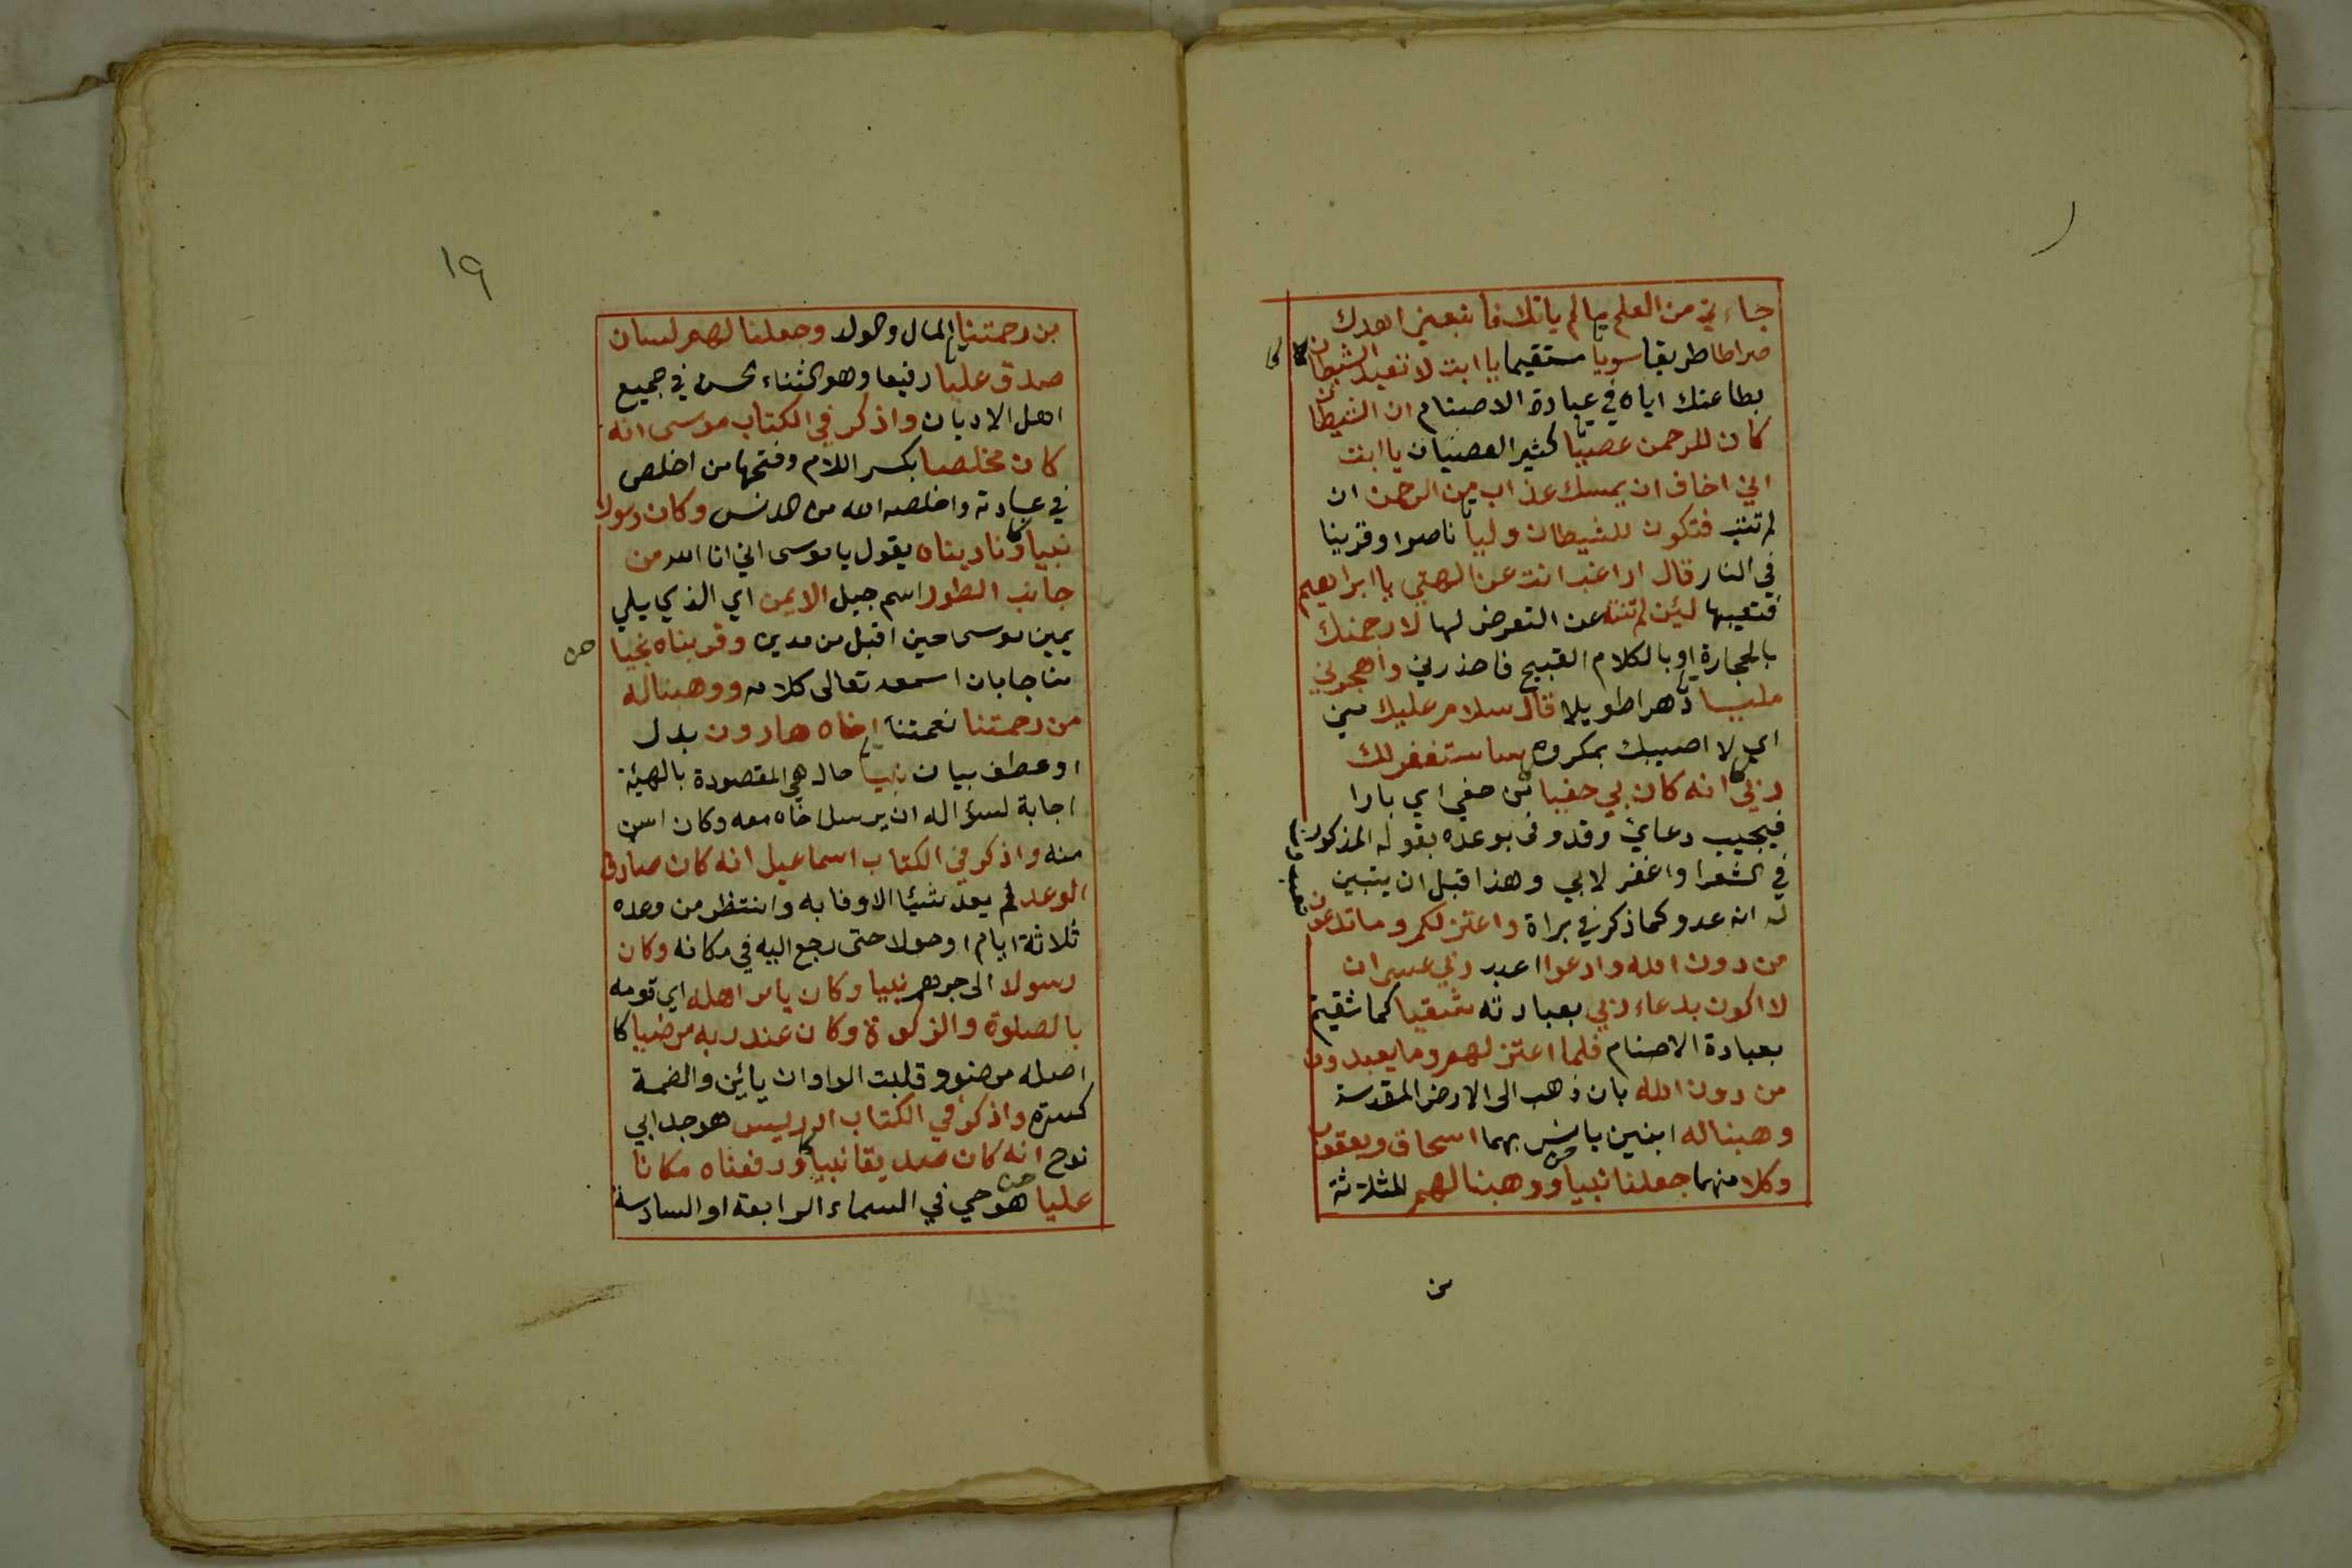 جاءني من العلم ما لم ياتك فاتبعني اهدك
صراطا طريقا سويا مستقيما يا ابت لا تعبد الشيطان
بطاعتك اياه في عبادة الاصنام ان الشيطان
كان للرحمن عصيا كثير العصيان يا ابت
اني اخاف ان يمسك عذاب من الرحمن ان
لم تتب فتكون للشيطان وليا ناصرا وقرينا
في النار قال اراغب انت عن الهتي يا ابراهيم
فتعيبها لئن لم تنته عن التعرض لها لارجمنك
بالحجارة او بالكلام القبيح فاحذرني واهجرني
مليا دهرا طويلا قال سلام عليك مني
اي لا اصيبك بمكروه ساستغفر لك
ربي انه كان بي حفيا من حفي اي بارا
فيجيب دعاي وقد وفى بوعده بقوله المذكور
في الشعرا واغفر لابي وهذا قبل ان يتبين
له انه عدو كما ذكر في براة واعتزلكم وما تدعون
من دون الله وادعوا اعبد ربي عسى ان
لا اكون بدعاء ربي بعبادته شقيا كما شقيتم
بعبادة الاصنام فلما اعتزلهم وما يعبدون
من دون الله بان ذهب الى الارض المقدسة
وهبنا له ابنين يانس بهما اسحاق ويعقوب
وكلا منهما جعلنا نبيا ووهبنا لهم للثلاثة
من
١٩
من رحمتنا المال والولد وجعلنا لهم لسان
صدق عليا رفيعا وهو الثناء الحسن في جميع
اهل الاديان واذكر في الكتاب موسى انه
كان مخلصا بكسر اللام وفتحها من اخلص
في عبادته واخلصه الله من الدنس وكان رسولا
نبيا وناديناه يقول يا موسى اني انا الله من
جانب الطور اسم جبل الايمن اي الذي يلي
يمين موسى حين اقبل من مدين وقربناه نجيا
مناجا بان اسمعه تعالى كلامه ووهبنا له
من رحمتنا نعمتنا اخاه هارون بدل
او عطف بيان نبيا حال هي المقصودة بالهيئة
اجابة لسؤاله ان يرسل اخاه معه وكان اسن
منه واذكر في الكتاب اسماعيل انه كان صادق
الوعد لم يعد شيئا الا وفا به وانتظر من وعده
ثلاثة ايام او حولا حتى رجع اليه في مكانه وكان
رسولا الى جرهم نبيا وكان يامر اهله اي قومه
بالصلوة والزكوة وكان عند ربه مرضيا
اصله مرضوو قلبت الواوان يائين والضمة
كسرة واذكر في الكتاب ادريس هو جد ابي
نوح انه كان صديقا نبيا ورفعناه مكانا
عليا هو حي في السماء الرابعة او السادسة